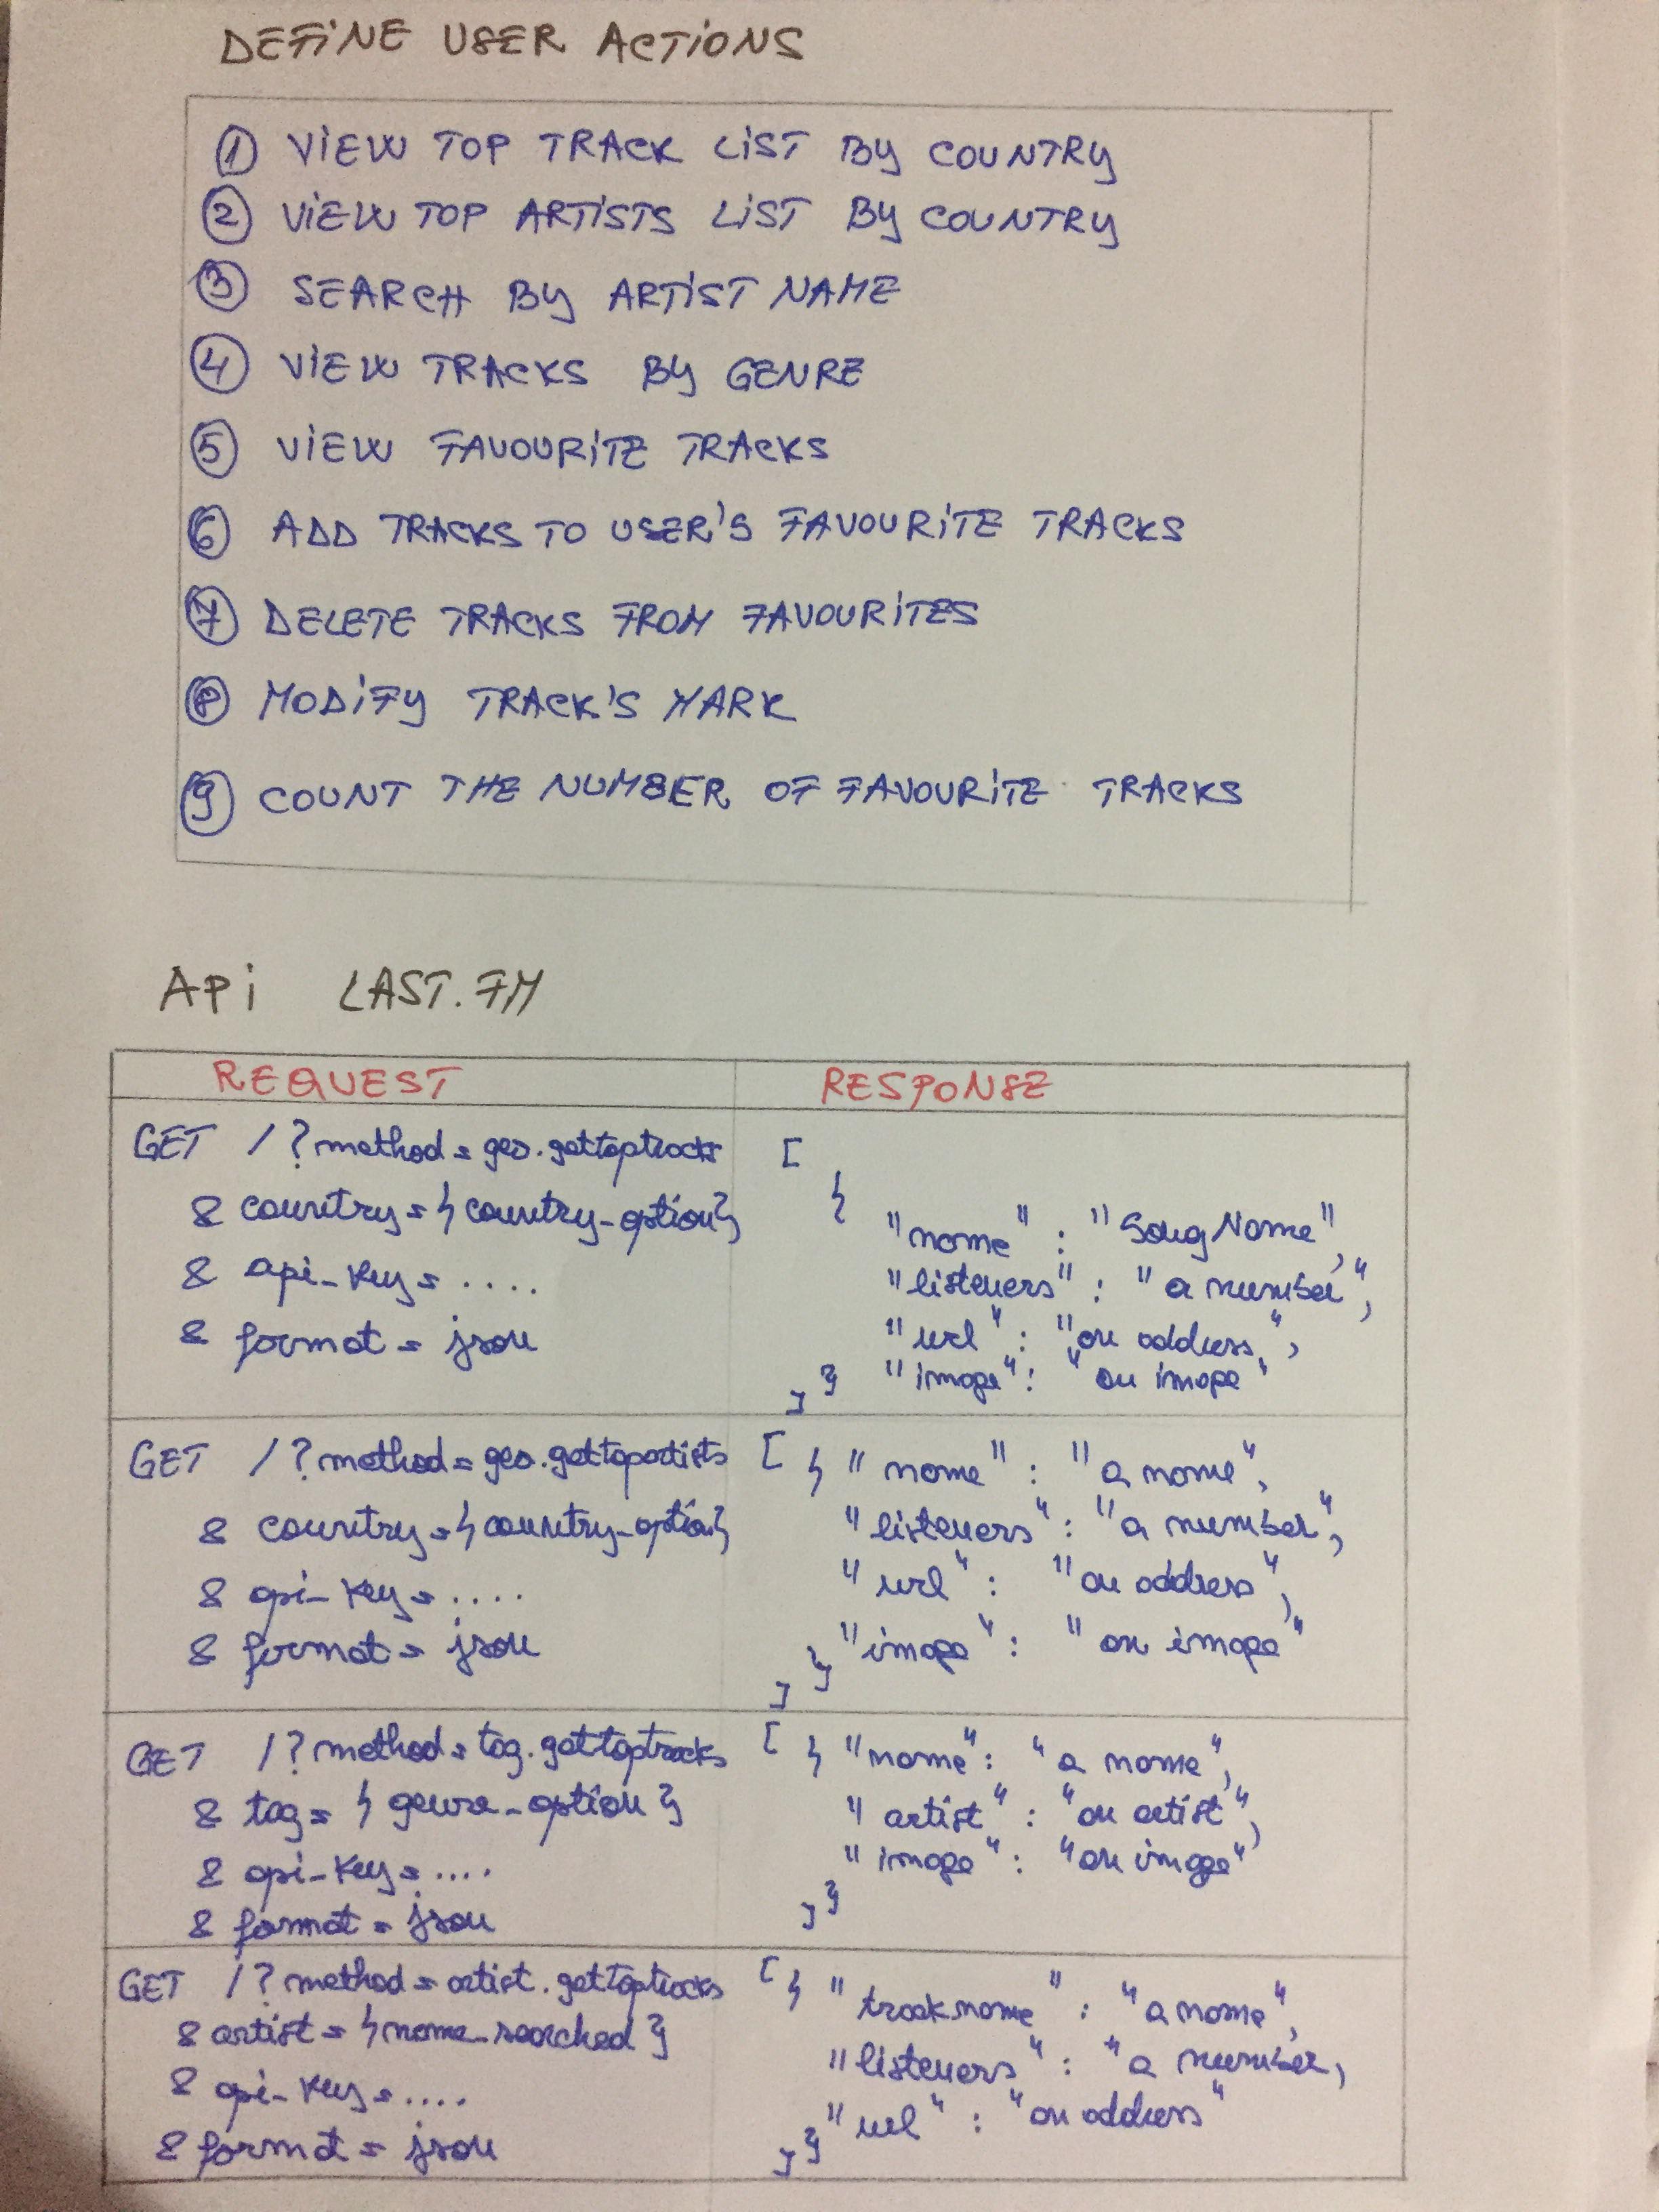 DEFINE USER ACTIONS
① VIEW TOP TRACK LIST BY COUNTRY
② VIEW TOP ARTISTS LIST BY COUNTRY
③ SEARCH BY ARTIST NAME
④ VIEW TRACKS BY GENRE
⑤ VIEW FAVOURITE TRACKS
⑥ ADD TRACKS TO USER'S FAVOURITE TRACKS
⑦ DELETE TRACKS FROM FAVOURITES
⑧ MODIFY TRACK'S MARK
⑨ COUNT THE NUMBER OF FAVOURITE TRACKS
Api LAST.FM
REQUEST
RESPONSE
GET /?method=geo.gettoptracks
& country={country-option}
& api-key=....
& format=json
[
{
"name" : "Song Name",
"listeners" : "a number",
"url" : "an address",
"image" : "an image"
}
]
GET /?method=geo.gettopartists
& country={country-option}
& api-key=....
& format=json
[ { "name" : "a name",
"listeners" : "a number",
"url" : "an address",
"image" : "an image"
}
]
GET /?method=tag.gettoptracks
& tag={genre-option}
& api-key=....
& format=json
[ { "name": "a name",
"artist" : "an artist",
"image" : "an image"
}
]
GET /?method=artist.gettoptracks
& artist={name-searched}
& api-key=....
& format=json
[ { "track name" : "a name",
"listeners" : "a number,
"url" : "an address"
}
]